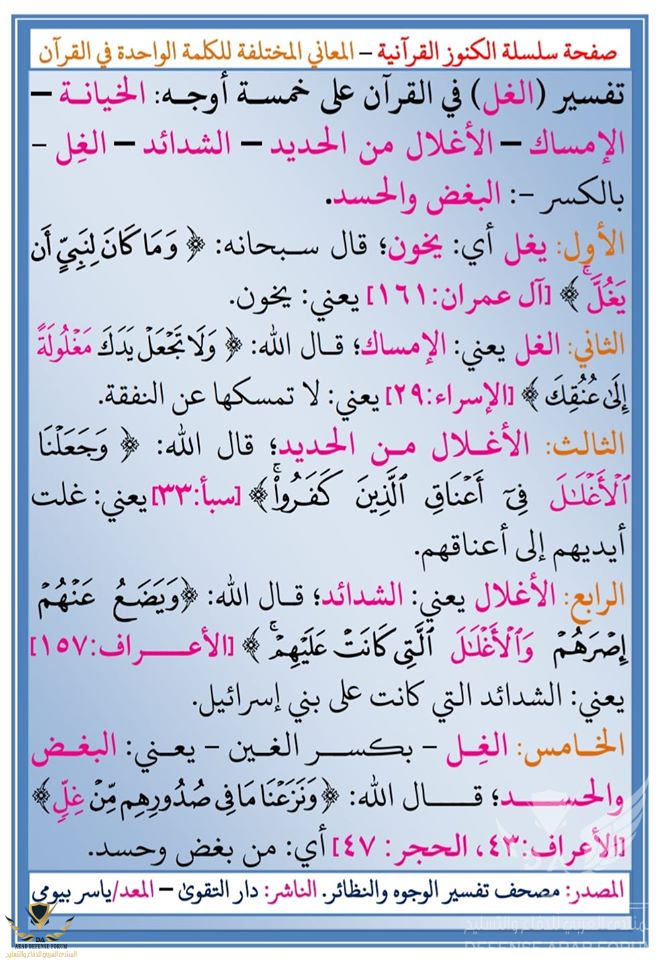 صفحة سلسلة الكنوز القرآنية – المعاني المختلفة للكلمة الواحدة في القرآن
تفسير (الغل) في القرآن على خمسة أوجه: الخيانة –
الإمساك – الأغلال من الحديد – الشدائد – الغِل –
بالكسر -: البغض والحسد.
الأول: يغل أي: يخون؛ قال سبحانه: ﴿ وَمَا كَانَ لِنَبِيٍّ أَن
يَغُلَّۚ ﴾ [آل عمران:١٦١] يعني: يخون.
الثاني: الغل يعني: الإمساك؛ قال الله: ﴿ وَلَا تَجۡعَلۡ يَدَكَ مَغۡلُولَةً
إِلَىٰ عُنُقِكَ ﴾ [الإسراء:٢٩] يعني: لا تمسكها عن النفقة.
الثالث: الأغلال من الحديد؛ قال الله: ﴿ وَجَعَلۡنَا
ٱلۡأَغۡلَٰلَ فِيٓ أَعۡنَاقِ ٱلَّذِينَ كَفَرُواْۚ ﴾ [سبأ:٣٣] يعني: غلت
أيديهم إلى أعناقهم.
الرابع: الأغلال يعني: الشدائد؛ قال الله: ﴿وَيَضَعُ عَنۡهُمۡ
إِصۡرَهُمۡ وَٱلۡأَغۡلَٰلَ ٱلَّتِي كَانَتۡ عَلَيۡهِمۡۚ ﴾ [الأعراف:١٥٧]
يعني: الشدائد التي كانت على بني إسرائيل.
الخامس: الغِل – بكسر الغين – يعني: البغض
والحسد؛ قال الله: ﴿وَنَزَعۡنَا مَا فِي صُدُورِهِم مِّنۡ غِلّٖ﴾
[الأعراف:٤٣، الحجر: ٤٧] أي: من بغض وحسد.
المصدر: مصحف تفسير الوجوه والنظائر. الناشر: دار التقوى – المعد/ياسر بيومي
ARAB DEFENSE FORUM
المنتدى العربي للدفاع والتسليح
المنتدى العربي للدفاع والتسليح
DEFENSE ARAB FORUM